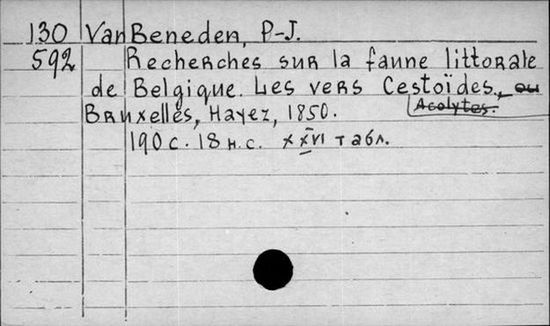 130 Van Beneden, P-J.
592 Recherches sur la faune littorale
de Belgique. Les vers Cestoïdes, ou
Acolytes.
Bruxelles, Hayez, 1850.
190 с. 18 н. с. XXVI табл.